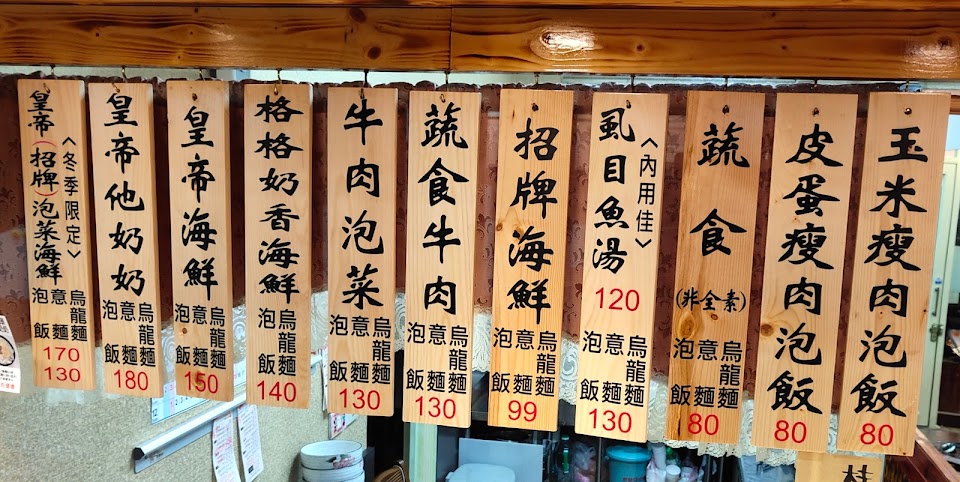 玉米瘦肉泡飯
80
皮蛋瘦肉泡飯
80
蔬食
(非全素)
烏龍麵
意麵
泡飯
80
虱目魚湯
〈內用佳〉
120
烏龍麵
意麵
泡飯
130
招牌海鮮
烏龍麵
意麵
泡飯
99
蔬食牛肉
烏龍麵
意麵
泡飯
130
牛肉泡菜
烏龍麵
意麵
泡飯
130
格格奶香海鮮
烏龍麵
泡飯
140
皇帝海鮮
烏龍麵
意麵
泡飯
150
皇帝他奶奶
烏龍麵
意麵
泡飯
180
〈冬季限定〉
皇帝(招牌)泡菜海鮮
烏龍麵
意麵
泡飯
170
130